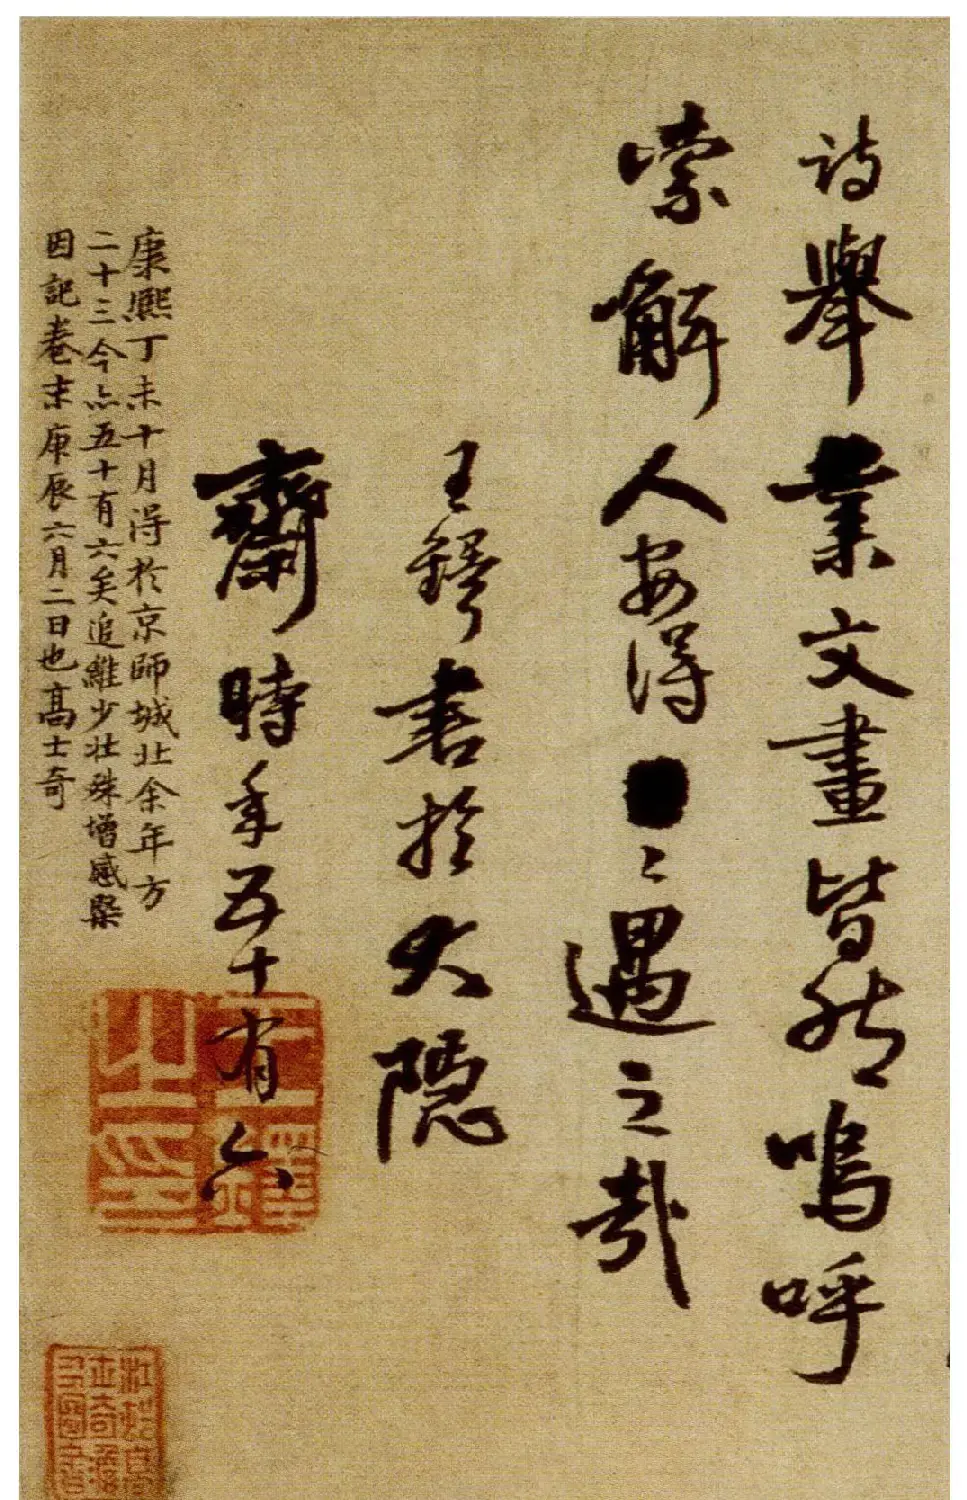 詩舉業文畫皆然嗚呼
索解人安得〻遇之哉
王鐸書於大隱
齋時年五十有六
康熙丁未十月得於京師城北余年方
二十三今亦五十有六矣追維少壯殊增感槩
因記卷末庚辰六月二日也高士奇
王鐸之印